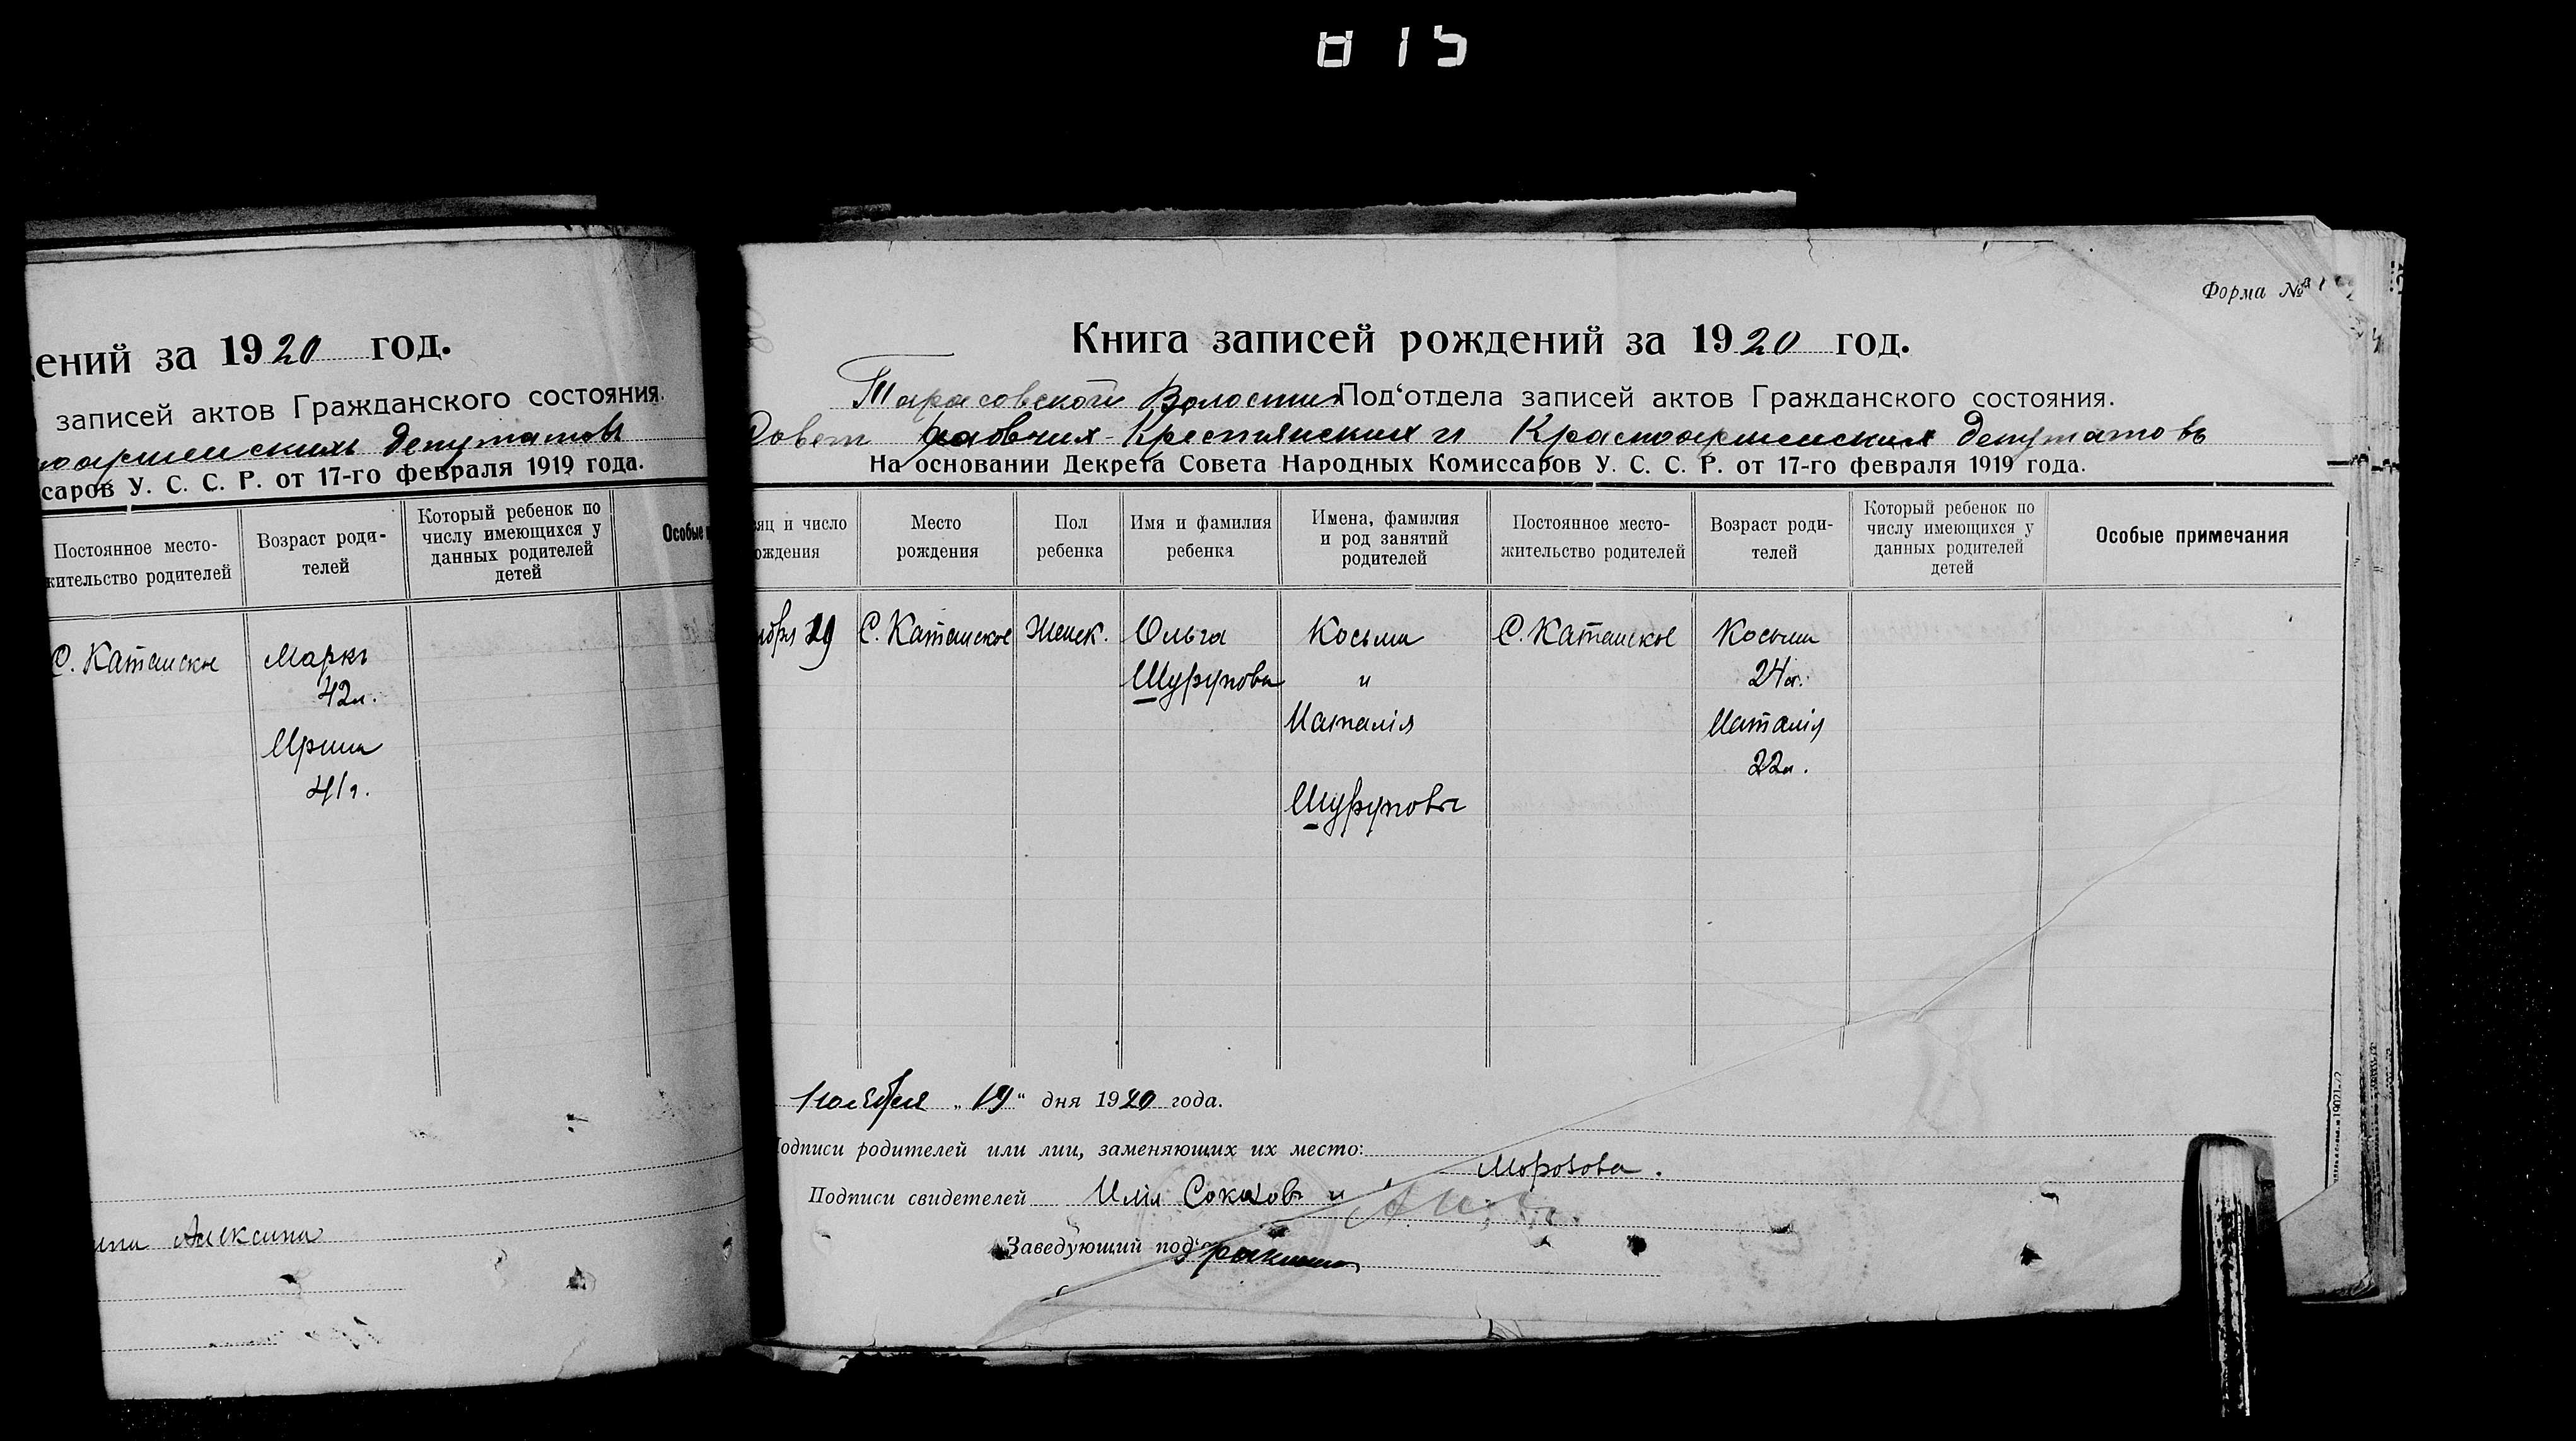 015
ений за 1920 год.
записей актов Гражданского состояния.
ноармейскихъ депутатовъ
саров У. С. С. Р. от 17-го февраля 1919 года.
Постоянное место-
жительство родителей
Возраст роди-
телей
Который ребенок по
числу имеющихся у
данных родителей
детей
Особые
С. Катанское
Маркъ
42 л.
Ирина
41 г.
Алексина
Форма №
Книга записей рождений за 1920 год.
Тарасовской Волости Под‘отдела записей актов Гражданского состояния.
Совет рабочих-Крестьянских и Красноармейских депутатовъ
На основании Декрета Совета Народных Комиссаров У. С. С. Р. от 17-го февраля 1919 года.
сяц и число
рождения
Место
рождения
Пол
ребенка
Имя и фамилия
ребенка
Имена, фамилия
и род занятий
родителей
Постоянное место-
жительство родителей
Возраст роди-
телей
Который ребенок по
числу имеющихся у
данных родителей
детей
Особые примечания
ября 19
С. Катанское
Женск.
Ольга
Шурупова
Косьма
и
Наталія
Шуруповы
С. Катанское
Косьма
24 г.
Наталія
22 л.
Ноября „19“ дня 1920 года.
Подписи родителей или лиц, заменяющих их место:
Морозова.
Подписи свидетелей Илія Соколовъ и
Заведующий под‘